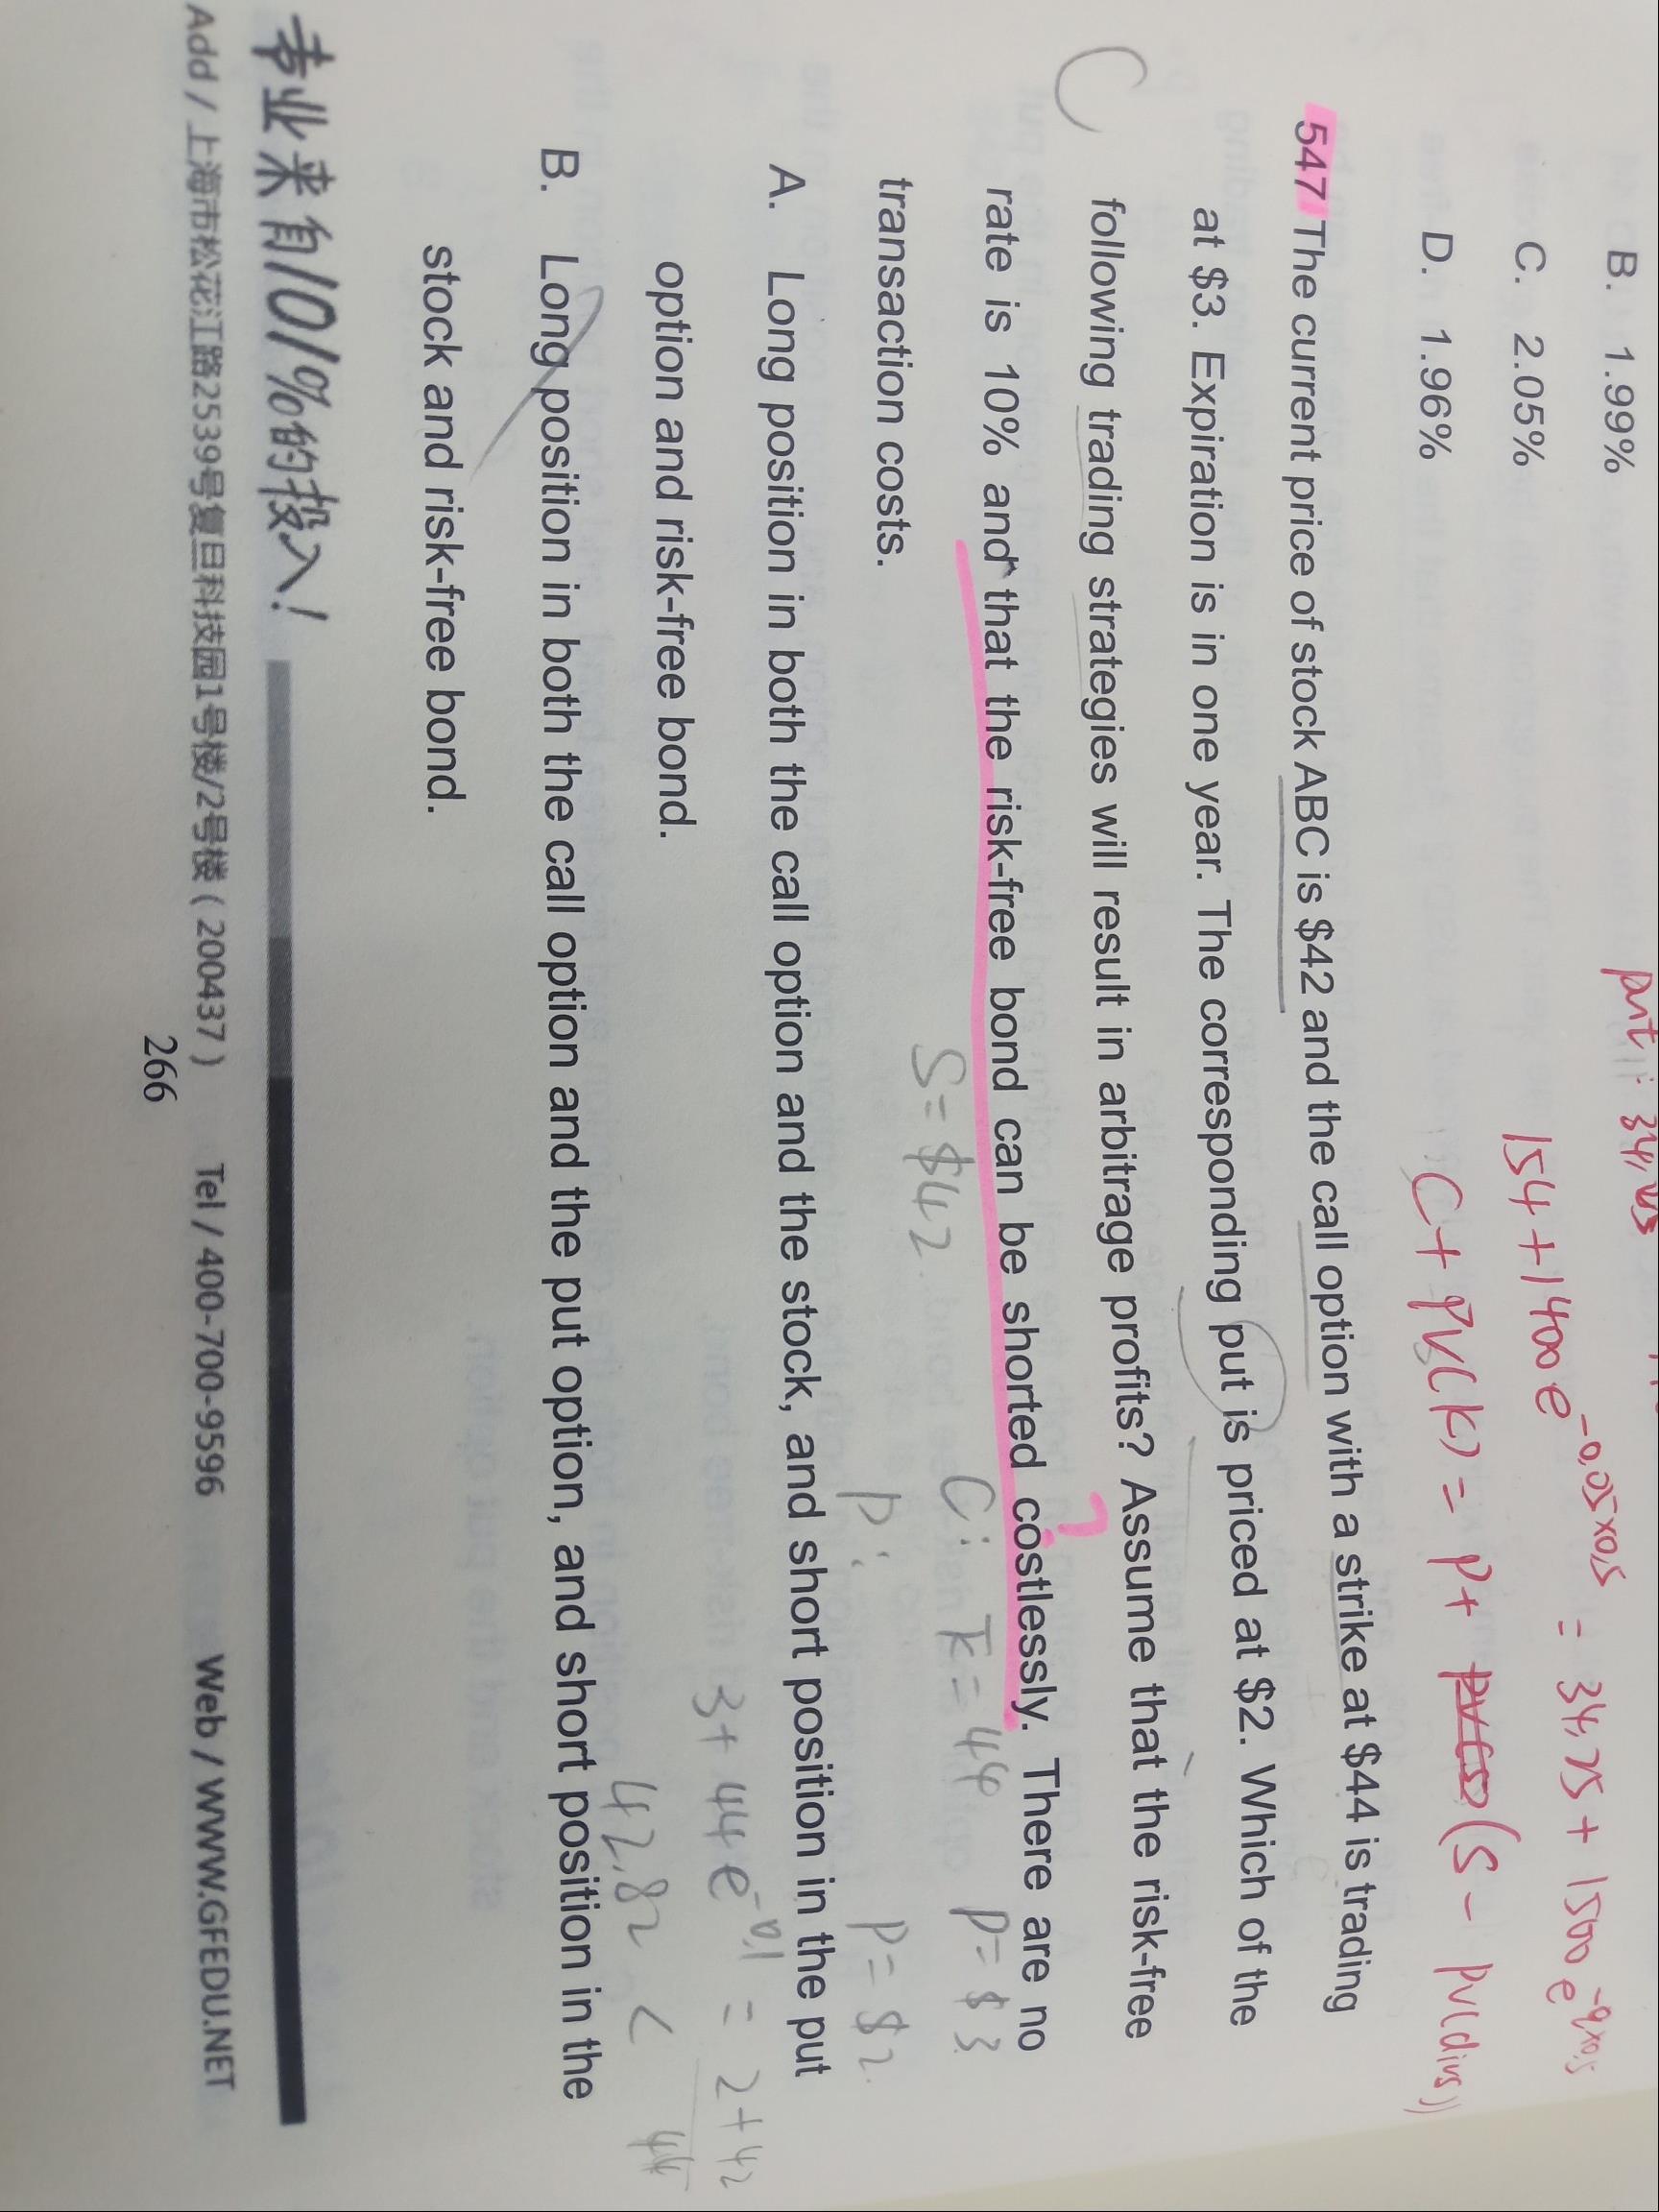 B. 1.99%
C. 2.05%
D. 1.96%
put: 34.75
154 + 1400 e^-0.05×0.5 = 34.75 + 1500 e^-q×0.5
C + PV(K) = P + (S - PV(divs))
547 The current price of stock ABC is $42 and the call option with a strike at $44 is trading
at $3. Expiration is in one year. The corresponding put is priced at $2. Which of the
following trading strategies will result in arbitrage profits? Assume that the risk-free
rate is 10% and that the risk-free bond can be shorted costlessly. There are no
transaction costs.
C
?
S = $42 C: K = 44 P = $3
P: P = $2
A. Long position in both the call option and the stock, and short position in the put
option and risk-free bond.
3 + 44 e^-0.1 = 2 + 42
42.82 < 44
B. Long position in both the call option and the put option, and short position in the
stock and risk-free bond.
专业来自101%的投入!
Add / 上海市松花江路2539号复旦科技园1号楼/2号楼 ( 200437 ) Tel / 400-700-9596 Web / WWW.GFEDU.NET
266